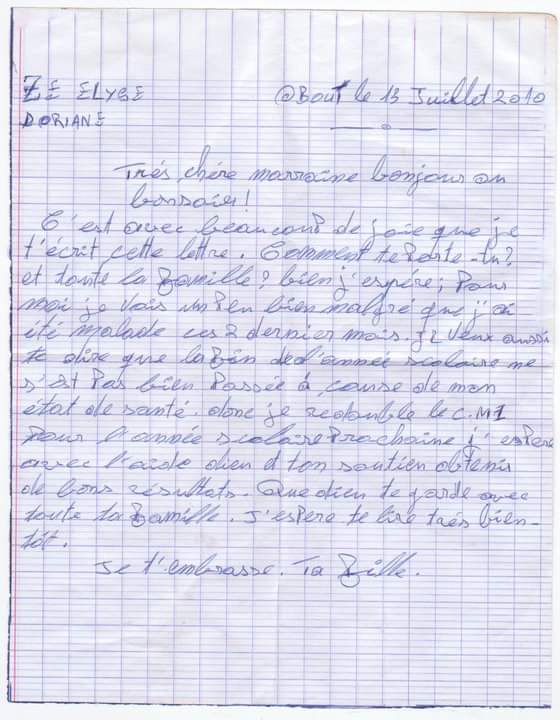 ZE ELYSE @Bout le 13 Juillet 2010
DORIANE
Trés chère marraine bonjour ou
bonsoir!
C'est avec beaucoup de joie que je
t'écrit cette lettre. Comment te Porte-tu?
et toute la famille? bien j'espére; Pour
moi je vais un Peu bien malgré que j'ai
été malade ces 2 dernier mois. je veux aussi
te dire que la fin de l'année scolaire ne
s'est Pas bien Passée à cause de mon
état de santé. donc je redouble le C.M1
Pour l'année scolaire Prochaine j'espere
avec l'aide dieu et ton soutien obtenir
de bons résultats. Que dieu te garde avec
toute ta famille. J'espere te lire trés bien-
tôt.
Je t'embrasse. Ta fille.